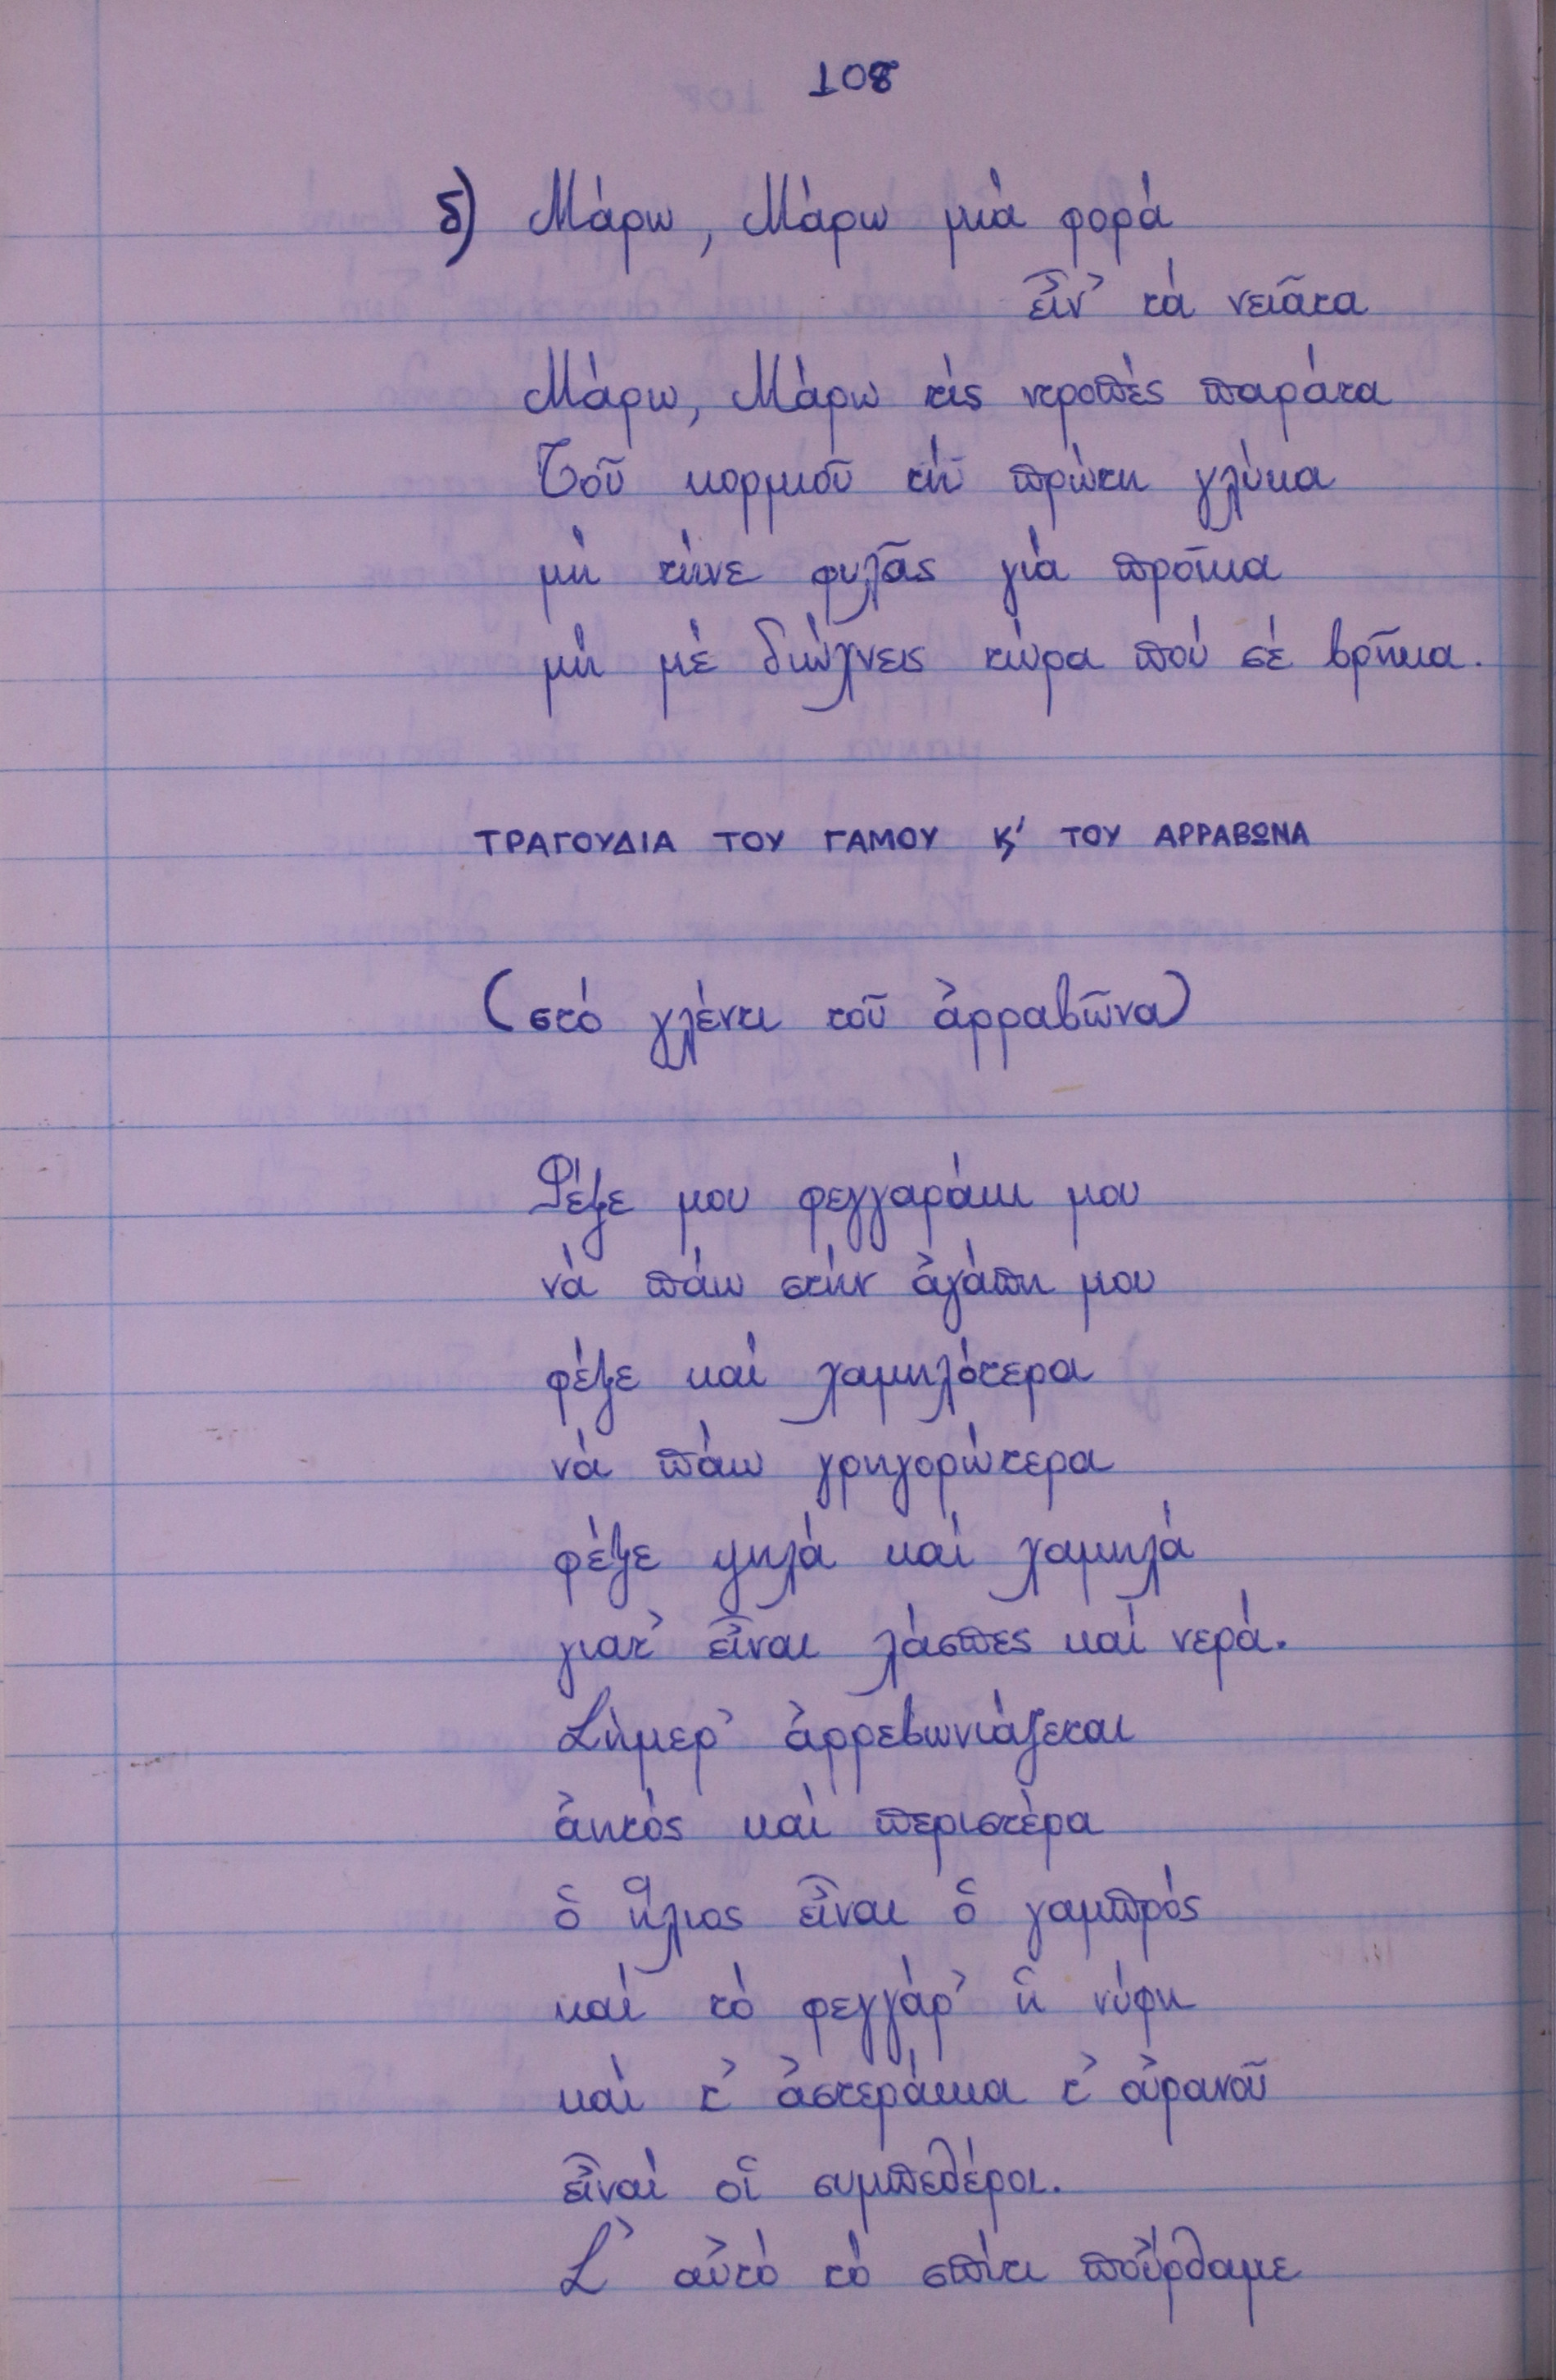 108
δ) Μάρω, Μάρω μιά φορά
εἶν' τά νειᾶτα
Μάρω, Μάρω τίς ντροπές παράτα
Τοῦ κορμιοῦ τή πρώτη γλύκα
μή τήνε φυλᾶς γιά προῖκα
μή μέ διώχνεις τώρα πού σέ βρῆκα.
ΤΡΑΓΟΥΔΙΑ ΤΟΥ ΓΑΜΟΥ Κ' ΤΟΥ ΑΡΡΑΒΩΝΑ
(στό γλέντι τοῦ ἀρραβῶνα)
Φέξε μου φεγγαράκι μου
νά πάω στήν ἀγάπη μου
φέξε καί χαμηλότερα
νά πάω γρηγορώτερα
φέξε ψηλά καί χαμηλά
γιατ' εἶναι λάσπες καί νερά.
Σήμερ' ἀρρεβωνιάζεται
ἀητός καί περιστέρα
ὁ ἥλιος εἶναι ὁ γαμπρός
καί τό φεγγάρ' ἡ νύφη
καί τ' ἀστεράκια τ' οὐρανοῦ
εἶναί οἱ συμπεθέροι.
Σ' αὐτό τό σπίτι ποὔρθαμε